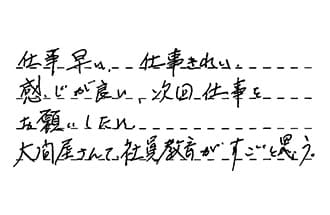 仕事早い、仕事きれい、
感じが良い、次回仕事を
お願いしたい
大間屋さんて社員教育がすごいと思う。